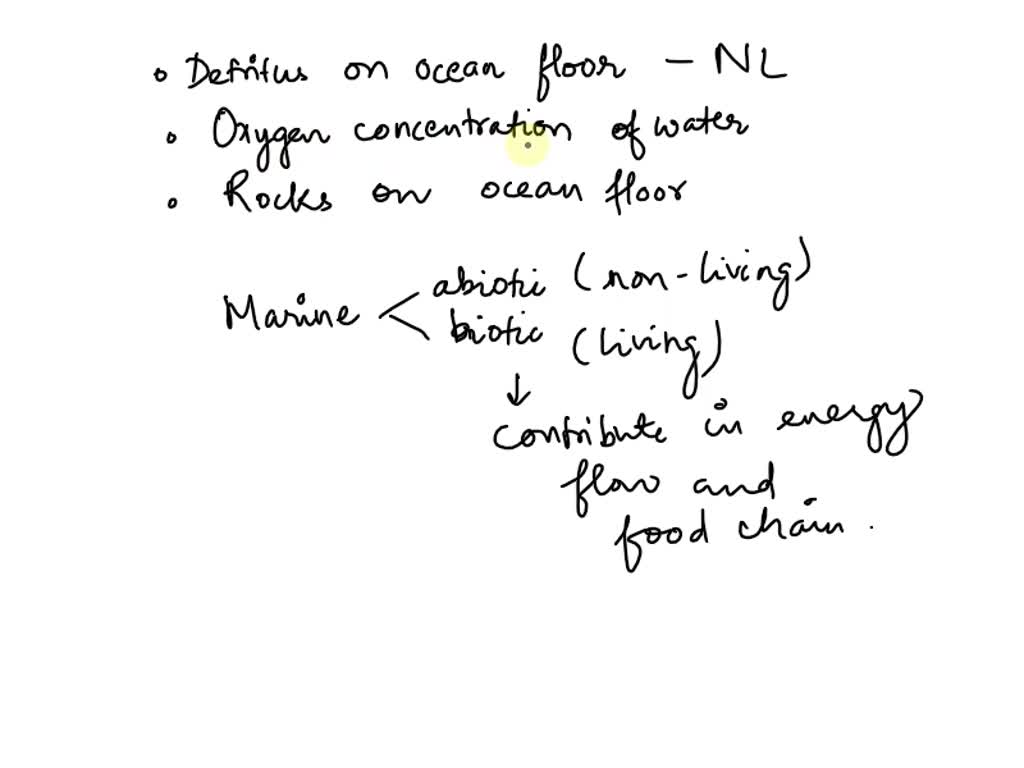 • Detritus on ocean floor – NL
• Oxygen concentration of water
• Rocks on ocean floor
Marine < abiotic (non-living)
biotic (living)
↓
contribute in energy
flow and
food chain.